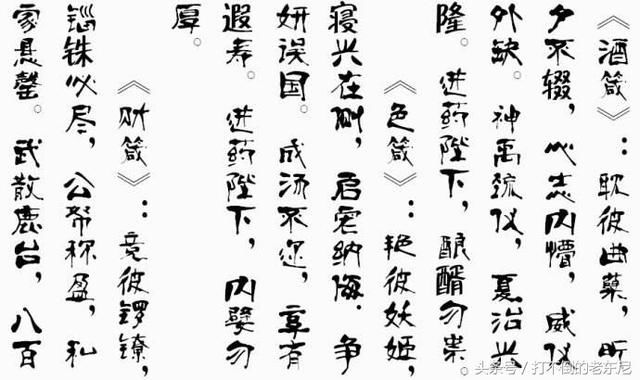 《酒箴》：耽彼曲蘖，昕
夕不辍，心志内懵，威仪
外缺。神禹疏仪，夏治兴
隆。进药陛下，酿醑勿崇。
《色箴》：艳彼妖姬，
寝兴在侧，启宠纳侮，争
妍误国。成汤不迩，享有
遐寿。进药陛下，内嬖勿
厚。
《财箴》：竞彼镠镣，
锱铢必尽，公帑称盈，私
家悬罄。武散鹿台，八百
头条号 / 打不倒的老东尼